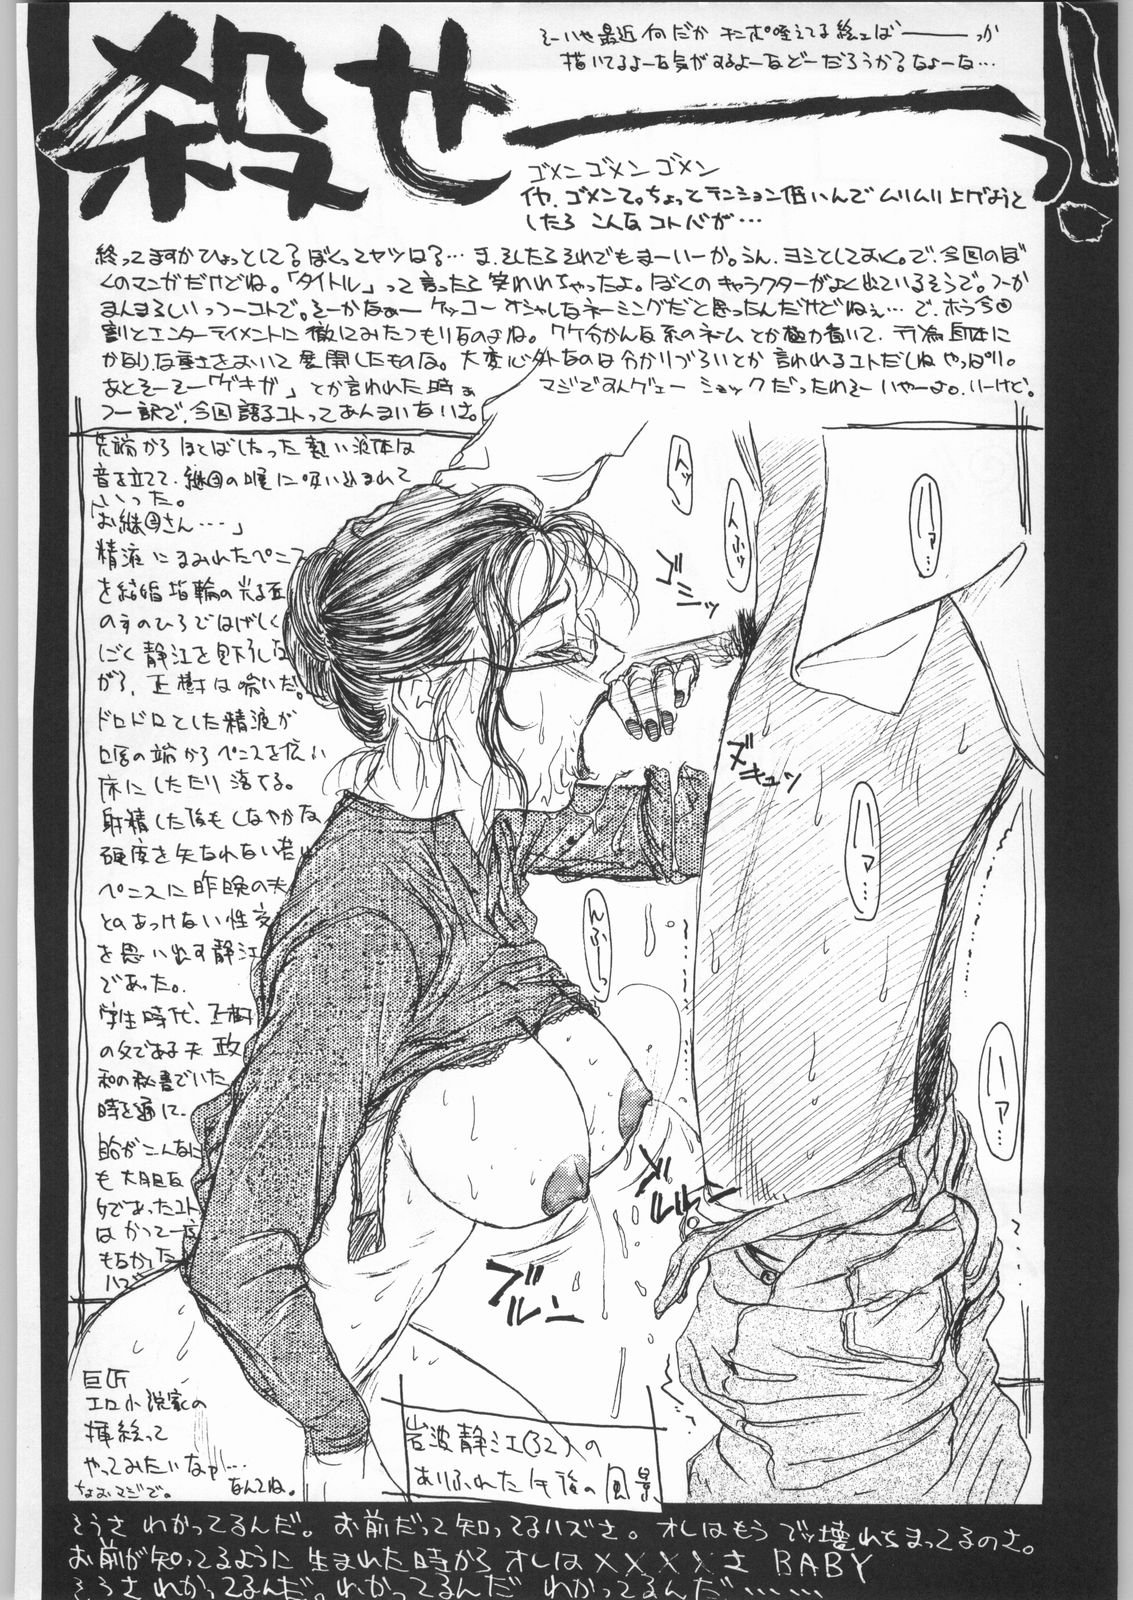 殺せーーっ!!
そーいや最近何だか チンポ咥えてる絵ェば───っか
描いてるよーな気がするよーなどーだろうか?なよーな…
ゴメンゴメンゴメン
イヤ、ゴメンて。ちょっとテンション低いんでムリムリ上げようと
したら こんなコトバが…
終ってますかひょっとして?ぼくってヤツは?… ま、そしたらそれでもまーいーか。うん、ヨシとしておく。で、今回のぼ
くのマンガだけどね。「タイトル」って言ったら笑われちゃったよ。ぼくのキャラクターがよく出ているそうで。つーか
まんまらしいっつーコトで。そーかなぁー ケッコーオシャレなネーミングだと思ったんだけどねぇ… で、ホラ今回
割とエンターテイメントに徹してみたつもりなのよね。ワケ分かんな系のネームとか極力省いて、行為自体に
かなりな重きをおいて展開したものな。大変心外なのは分かりづらいとか言われるコトだしね やっぱり。
あとそーそー「ゲキガ」とか言われた時ぁ マジですんゲェー ショックだったわそーいやーよ。いーけど。
つー訳で、今回語るコトってあんまいないさ。
先端からほとばしった熱い液体は
音を立てて、継母の喉に吸い込まれて
いった。
「お継母さん‥‥」
精液にまみれたペニス
を結婚指輪の光る左
の手のひらではげしく
しごく静江を見下ろしな
がら、正樹は喘いだ。
ドロドロとした精液が
口唇の端からペニスを伝い
床にしたたり落てる。
射精した後もしなやかな
硬度を失なわない若い
ペニスに昨晩の夫
とのあっけない性交
を思い出す静江
であった。
学生時代、正樹
の父である夫 政
和の秘書でいた
時を通じ、
自分がこんなに
も大胆な
であったコト
はかつて一度
もなかった
ハズ
ンッ
ンふッ
ハァ…
ズニッ
ズキュッ
ハァ…
んふーっ
ハァ…
ブルルン
ブルン
巨匠
エロ小説家の
挿絵って
やってみたいなァ…
なんてね。
なおマジで。
岩波静江(32)の
ありふれた午後の風景
そうさ わかってるんだ。お前だって知ってるハズさ。オレはもう ブッ壊れちまってるのさ。
お前が知ってるように 生まれた時から オレは××××さ BABY
そうさ わかってるんだ。わかってるんだ わかってるんだ……